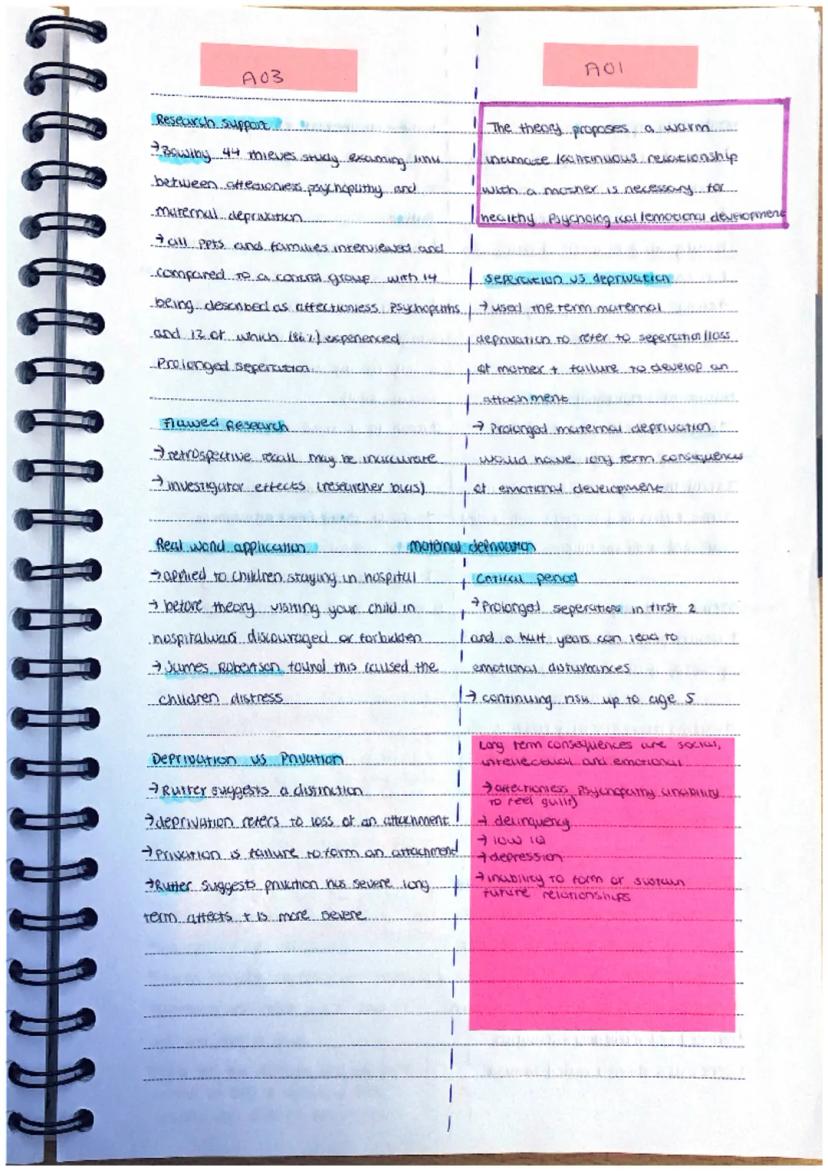 A03
Research support
→ Bowlby 44 thieves study examing link
between affectionless psychopathy and
maternal deprivation
→ all ppts and families interviewed and
compared to a control group with 14
being described as affectionless psychopaths
and 12 of which (86%) experienced
Prolonged seperation
Flawed Research
→ retrospective recall may be inaccurate
→ investigator effects (researcher bias)
Real world application
→ applied to children staying in hospital
→ before theory visiting your child in
hospital was discouraged or forbidden
→ James Robertson found this caused the
children distress
Deprivation vs Privation
→ Rutter suggests a distinction
→ deprivation refers to loss of an attachment
→ Privation is failure to form an attachment
→ Rutter suggests privation has severe long
term affects + is more severe
A01
The theory proposes a warm
intimate /continuous relationship
with a mother is necessary for
healthy Psychological/emotional development
seperation vs deprivation
→ used the term maternal
deprivation to refer to seperation/loss
of mother + failure to develop an
attachment
→ Prolonged maternal deprivation
would have long term consequences
of emotional development
maternal deprivation
Critical period
→ Prolonged seperation in first 2
and a half years can lead to
emotional disturbances
→ continuing risk up to age 5
Long term consequences are social,
intellectual and emotional
→ affectionless Psychopathy (inability
to feel guilt)
→ delinquency
→ low IQ
→ depression
→ inability to form or sustain
future relationships